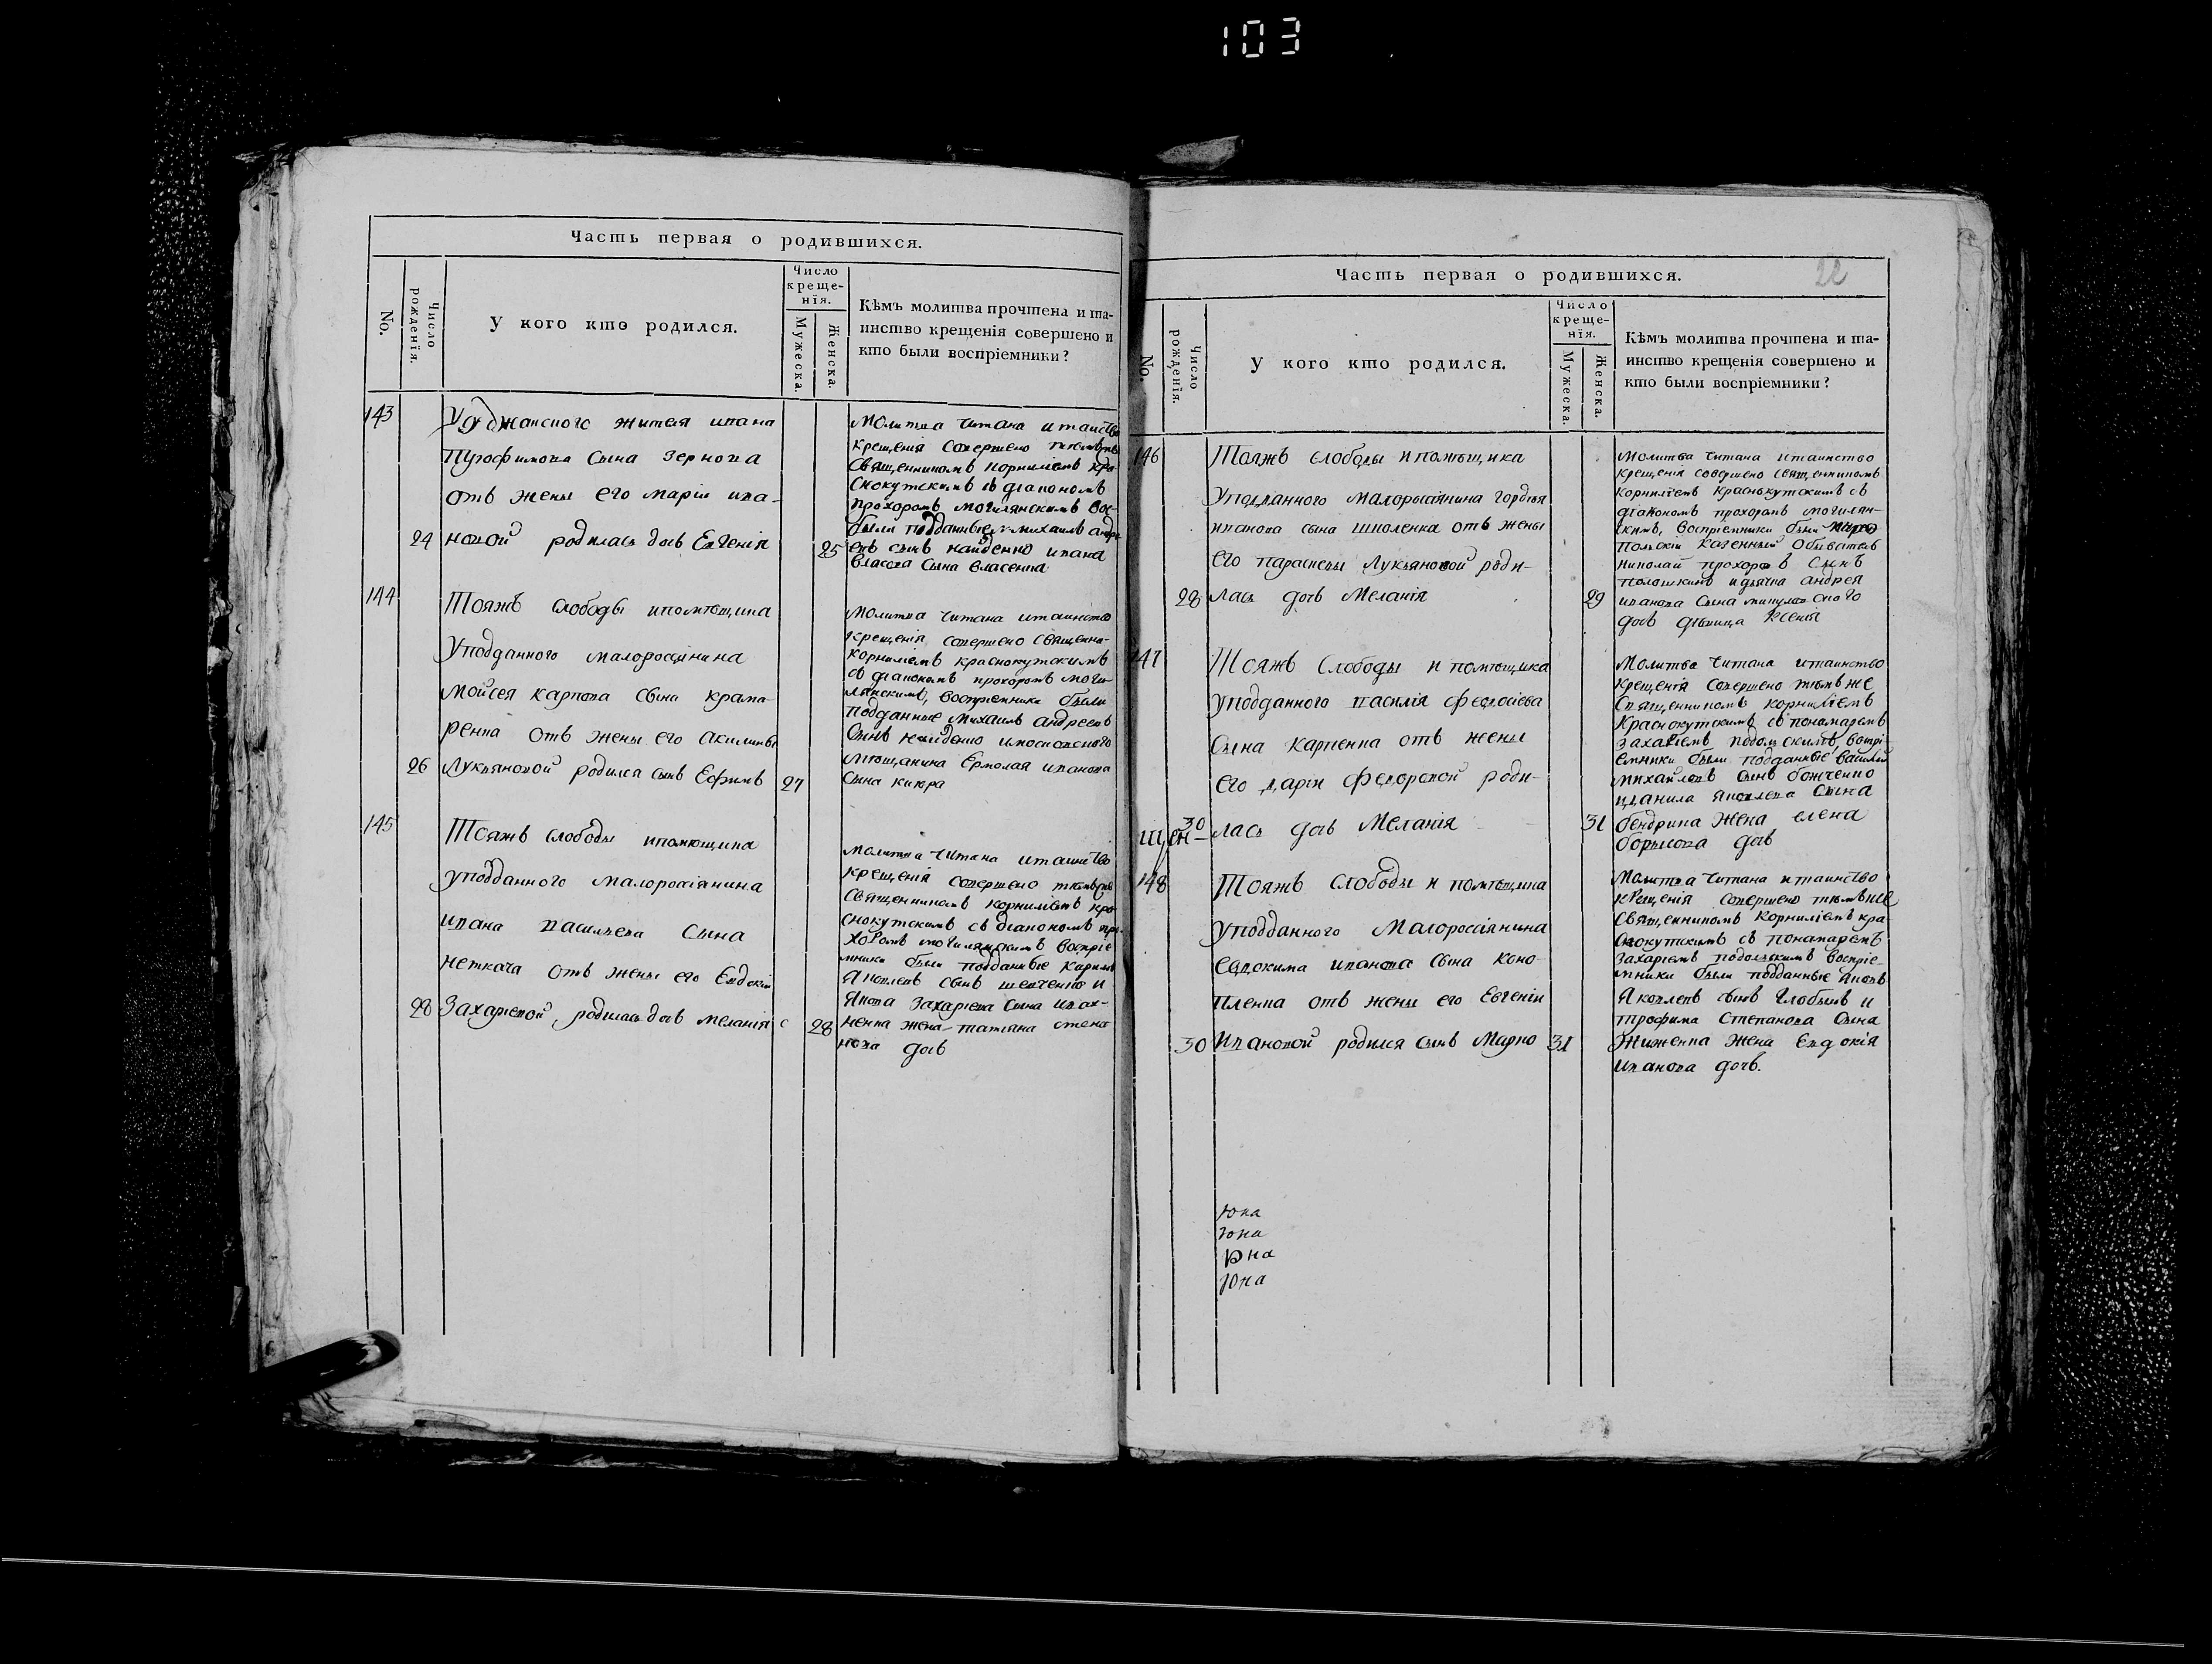 103
Часть первая о родившихся.
No.
Число рожденія.
У кого кто родился.
Число креще-
нія.
Мужеска.
Женска.
Кѣмъ молитва прочтена и та-
инство крещенія совершено и
кто были воспріемники?
143
жителя ивана
Трофимова сына зернова
отъ жены его маріи ива-
24 новой родилась дочь Евгенія 25
молитва читана и таинство
крещенія совершено
священникомъ корниліемъ кра-
снокутскимъ съ діакономъ
прохоромъ могилянскимъ вос-
были подданные михаилъ андре
евъ сынъ найденко ивана
власова сына власенка
144
Тояжъ слободы ипомѣщика
уподданного малороссіянина
мойсея карпова сына крама-
ренка отъ жены его акилины
26 лукьяновой родился сынъ Ефимъ 27
молитва читана итаинство
крещенія совершено священни-
корниліемъ краснокутскимъ
съ діакономъ прохоромъ моги-
лянскимъ, воспріемники были
подданные михаилъ андреевъ
сынъ найденко
мѣщанина Ермолая иванова
сына
145
Тояжъ слободы ипомѣщика
уподданного малороссіянина
ивана васильева сына
неткача отъ жены его Евдокіи
28 Захаріевой, родилась дочь меланія 28
молитва читана итаинство
крещенія совершено
священникомъ корниліемъ кра
снокутскимъ съ діакономъ про-
хоромъ могилянскимъ воспріе
мники были подданные
яковлевъ сынъ шевченко и
якова захаріева сына
ненка жена татіана
нова дочь
Часть первая о родившихся.
22
No.
Число рожденія.
У кого кто родился.
Число креще-
нія.
Мужеска.
Женска.
Кѣмъ молитва прочтена и та-
инство крещенія совершено и
кто были воспріемники?
146
Тояжъ слободы ипомѣщика
уподданного малороссіянина гордѣя
иванова сына школенка отъ жены
его параскевы лукьяновой роди-
28 лась дочь меланія 29
молитва читана итаинство
крещенія совершено священникомъ
корниліемъ краснокутскимъ съ
діакономъ прохоромъ могилян-
скимъ, воспріемники были
польскій казенный обыватель
николай прохоровъ сынъ
идьячка андрея
иванова сына
дочь дѣвица ксенія
147
Тояжъ слободы ипомѣщика
уподданного василія федосіева
сына карпенка отъ жены
его даріи федоровой роди-
30
щен- лась дочь меланія 31
молитва читана итаинство
крещенія совершено тѣмъ же
священникомъ корниліемъ
краснокутскимъ съ пономаремъ
захаріемъ подольскимъ, воспрі-
емники были подданные василій
михайловъ сынъ божченко
данила яковлева сына
бендрика жена елена
борисова дочь
148
Тояжъ слободы ипомѣщика
уподданного малороссіянина
евдокима иванова сына коно-
пленка отъ жены его Евгеніи
30 ивановой родился сынъ марко 31
молитва читана итаинство
крещенія совершено тѣмъ же
священникомъ корниліемъ кра-
снокутскимъ съ пономаремъ
захаріемъ подольскимъ воспріе-
мники были подданные яковъ
яковлевъ сынъ глобинъ и
трофима степанова сына
жена Евдокія
иванова дочь.
юна
юна
юна
юна